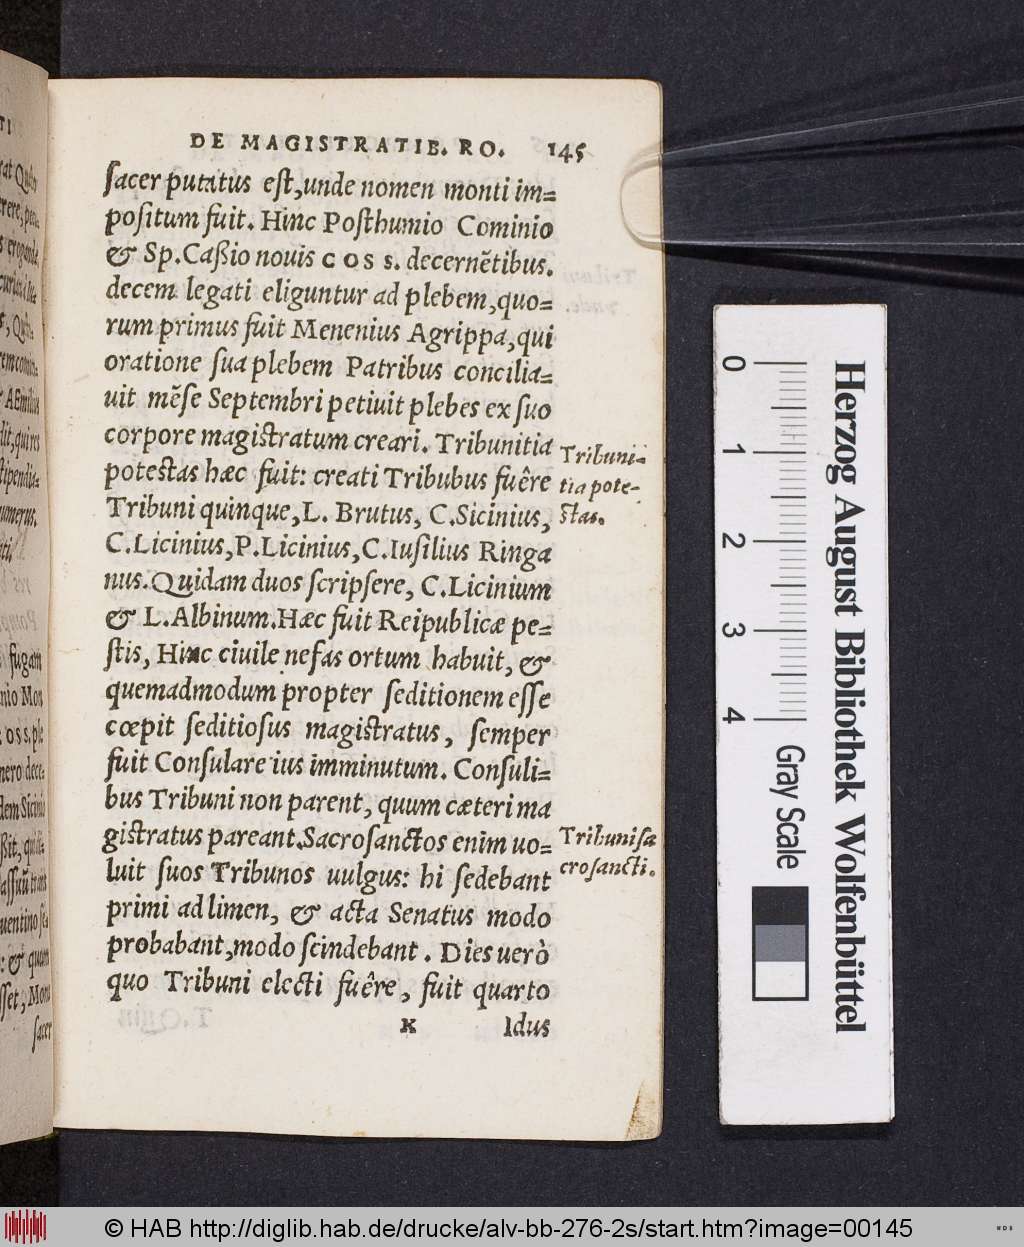 DE MAGISTRATIB. RO. 145
sacer putatus est, unde nomen monti im=
positum fuit. Hinc Posthumio Cominio
& Sp. Caßio nouis coss. decernẽtibus.
decem legati eliguntur ad plebem, quo=
rum primus fuit Menenius Agrippa, qui
oratione sua plebem Patribus concilia=
uit mẽse Septembri petiuit plebes ex suo
corpore magistratum creari. Tribunitia
potestas hæc fuit: creati Tribubus fuêre
Tribuni quinque, L. Brutus, C. Sicinius,
C. Licinius, P. Licinius, C. Iusilius Ringa
nus. Quidam duos scripsere, C. Licinium
& L. Albinum. Hæc fuit Reipublicæ pe=
stis, Hinc ciuile nefas ortum habuit, &
quemadmodum propter seditionem esse
cœpit seditiosus magistratus, semper
fuit Consulare ius imminutum. Consuli=
bus Tribuni non parent, quum cæteri ma
gistratus pareant. Sacrosanctos enim uo=
luit suos Tribunos uulgus: hi sedebant
primi ad limen, & acta Senatus modo
probabant, modo scindebant. Dies uerò
quo Tribuni electi fuêre, fuit quarto
K Idus
Tribuni=
tia pote-
stas.
Tribuni sa
crosancti.
0 1 2 3 4
Gray Scale
Herzog August Bibliothek Wolfenbüttel
© HAB http://diglib.hab.de/drucke/alv-bb-276-2s/start.htm?image=00145
WDB